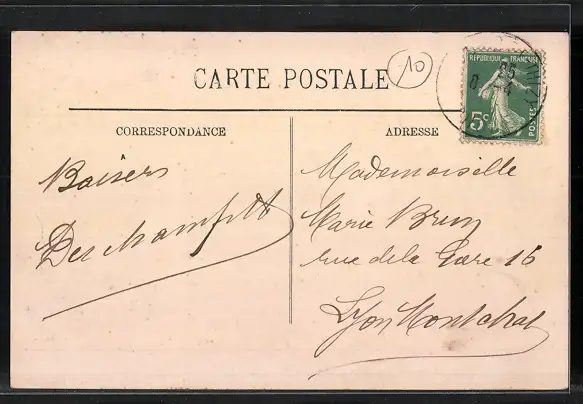 CARTE POSTALE
10
REPUBLIQUE FRANÇAISE
5c
POSTES
CORRESPONDANCE
ADRESSE
Baisers
Mademoiselle
Marie Brun
rue de la Gare 16
Lyon Montchat